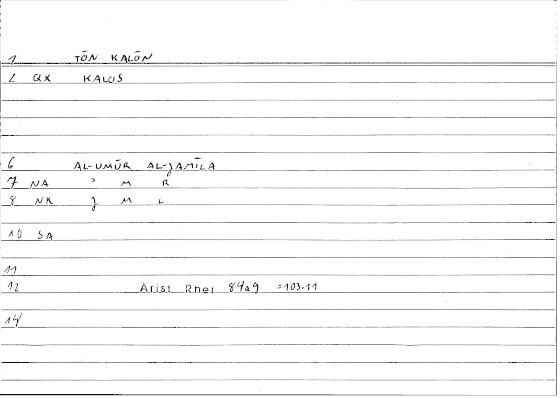 1 TŌN KALŌN
2 QX KALOS
6 AL-UMŪR AL-JAMĪLA
7 NA ʾ M R
8 NK J M L
10 SA
11
12 Arist Rhet 84a9 =103.11
14